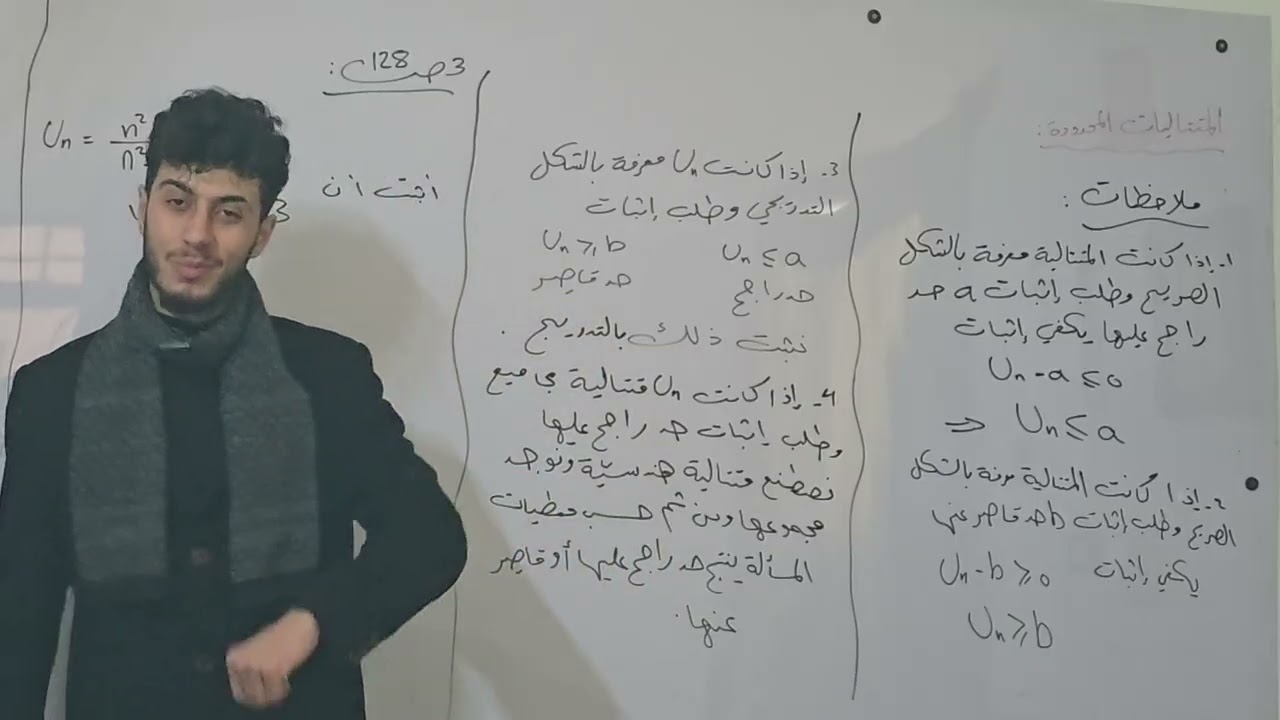 المتتاليات المحدودة:
ملاحظات:
1- إذا كانت المتتالية معرفة بالشكل
الصريح وطلب إثبات a حد
راجح عليها يكفي إثبات
Un - a ≤ 0
⇒ Un ≤ a
2- إذا كانت المتتالية معرفة بالشكل
الصريح وطلب إثبات b حد قاصر عنها
يكفي إثبات Un - b ≥ 0
Un ≥ b
3- إذا كانت Un معرفة بالشكل
التدريجي وطلب إثبات
Un ≤ a Un ≥ b
حد راجح حد قاصر
نثبت ذلك بالتدريج.
4- إذا كانت Un متتالية مجاميع
وطلب إثبات حد راجح عليها
نصطنع متتالية هندسيّة ونوجد
مجموعها ومن ثم حسب معطيات
المسألة ينتج حد راجح عليها أو قاصر
عنها.
3 ص 128:
Un = n²
n²
أثبت أن
3